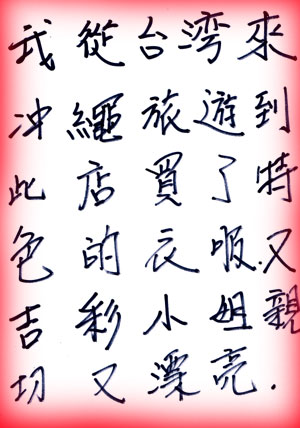 我從台湾來
冲繩旅遊到
此店買了特
色的衣服.又
吉彩小姐親
切又漂亮.